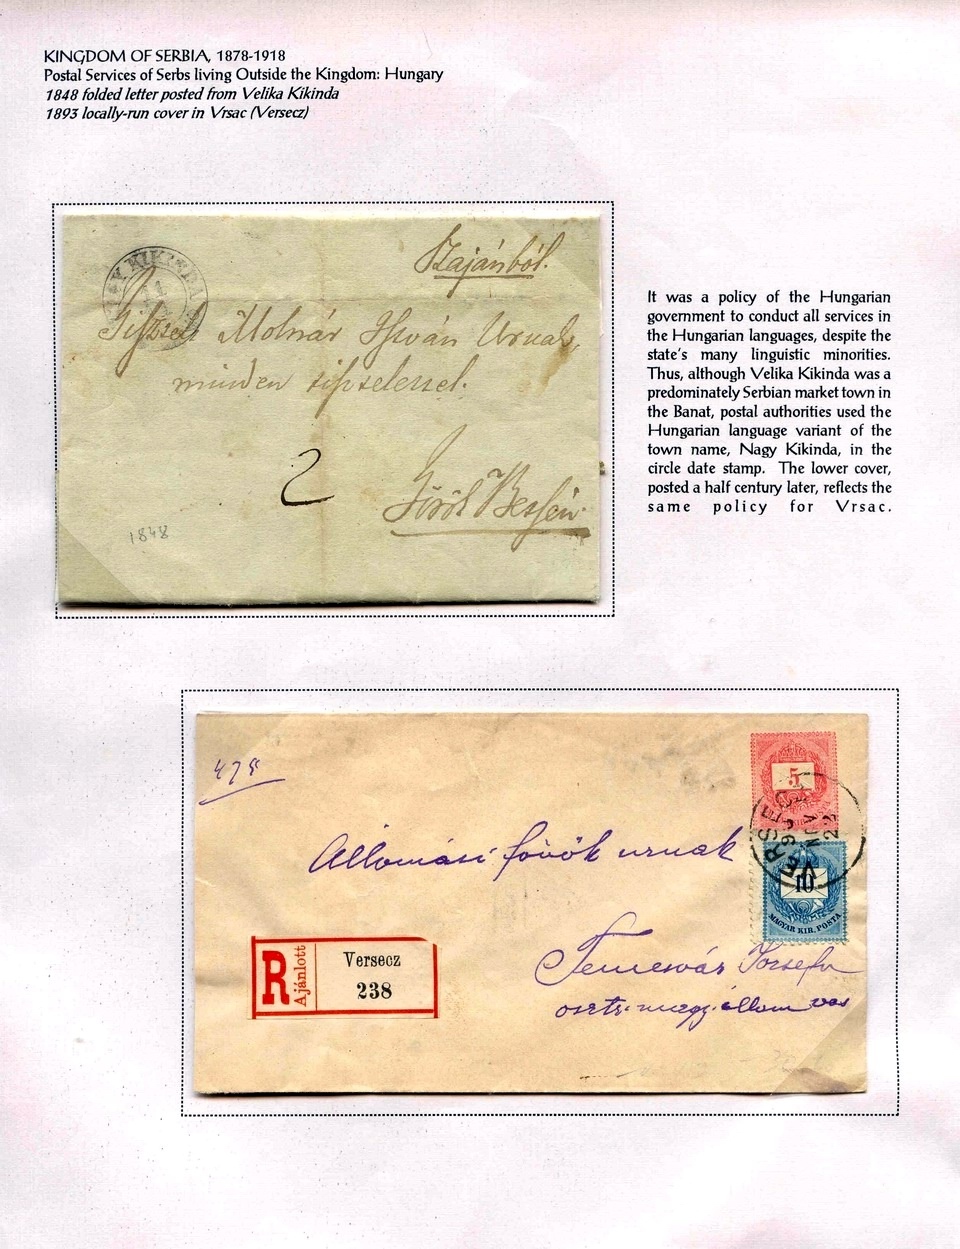 KINGDOM OF SERBIA, 1878-1918
Postal Services of Serbs living Outside the Kingdom: Hungary
1848 folded letter posted from Velika Kikinda
1893 locally-run cover in Vrsac (Versecz)
KIKINDA
Szajánból.
Molnár István Urnak,
minden
2
Török
1848
It was a policy of the Hungarian
government to conduct all services in
the Hungarian languages, despite the
state's many linguistic minorities.
Thus, although Velika Kikinda was a
predominately Serbian market town in
the Banat, postal authorities used the
Hungarian language variant of the
town name, Nagy Kikinda, in the
circle date stamp. The lower cover,
posted a half century later, reflects the
same policy for Vrsac.
5
10
MAGYAR KIR. POSTA
Állomási főnök urnak
R Ajánlott
Versecz
238
Temesvár Józsefv